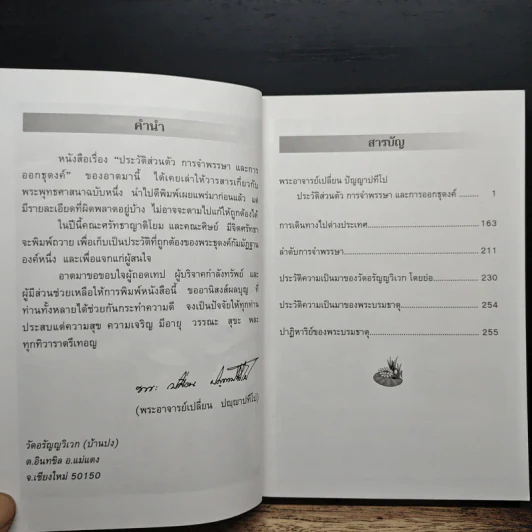 คำนำ
หนังสือเรื่อง "ประวัติส่วนตัว การจำพรรษา และการ
ออกธุดงค์" ของอาตมานี้ ได้เคยเล่าให้วารสารเกี่ยวกับ
พระพุทธศาสนาฉบับหนึ่ง นำไปตีพิมพ์เผยแพร่มาก่อนแล้ว แต่
มีรายละเอียดที่ผิดพลาดอยู่บ้าง ไม่อาจจะตามไปแก้ให้ถูกต้องได้
ในปีนี้คณะศรัทธาญาติโยม และคณะศิษย์ มีจิตศรัทธา
จะพิมพ์ถวาย เพื่อเก็บเป็นประวัติที่ถูกต้องของพระธุดงค์กัมมัฏฐาน
องค์หนึ่ง และเพื่อแจกแก่ผู้สนใจ
อาตมาขอขอบใจผู้ถอดเทป ผู้บริจาคกำลังทรัพย์ และ
ผู้มีส่วนช่วยเหลือให้การพิมพ์หนังสือนี้ ขออานิสงส์ผลบุญ ที่
ท่านทั้งหลายได้ช่วยกันกระทำความดี จงเป็นปัจจัยให้ทุกท่าน
ประสบแต่ความสุข ความเจริญ มีอายุ วรรณะ สุขะ พละ
ทุกทิวาราตรีเทอญ
(พระอาจารย์เปลี่ยน ปญฺญาปทีโป)
วัดอรัญญวิเวก (บ้านปง)
ต.อินทขิล อ.แม่แตง
จ.เชียงใหม่ 50150
สารบัญ
พระอาจารย์เปลี่ยน ปัญญาปทีโป
ประวัติส่วนตัว การจำพรรษา และการออกธุดงค์ 1
การเดินทางไปต่างประเทศ 163
ลำดับการจำพรรษา 211
ประวัติความเป็นมาของวัดอรัญญวิเวก โดยย่อ 230
ประวัติความเป็นมาของพระบรมธาตุ 254
ปาฏิหาริย์ของพระบรมธาตุ 255